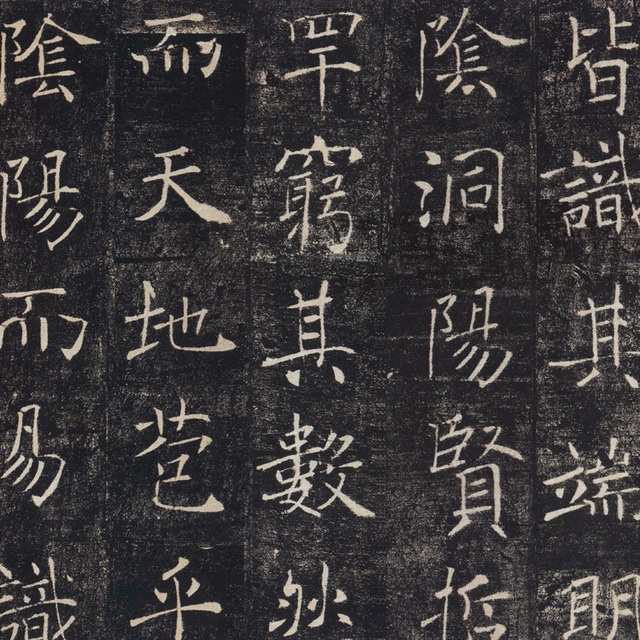 皆識其端明
陰洞陽賢哲
罕窮其數然
而天地苞乎
陰陽而易識